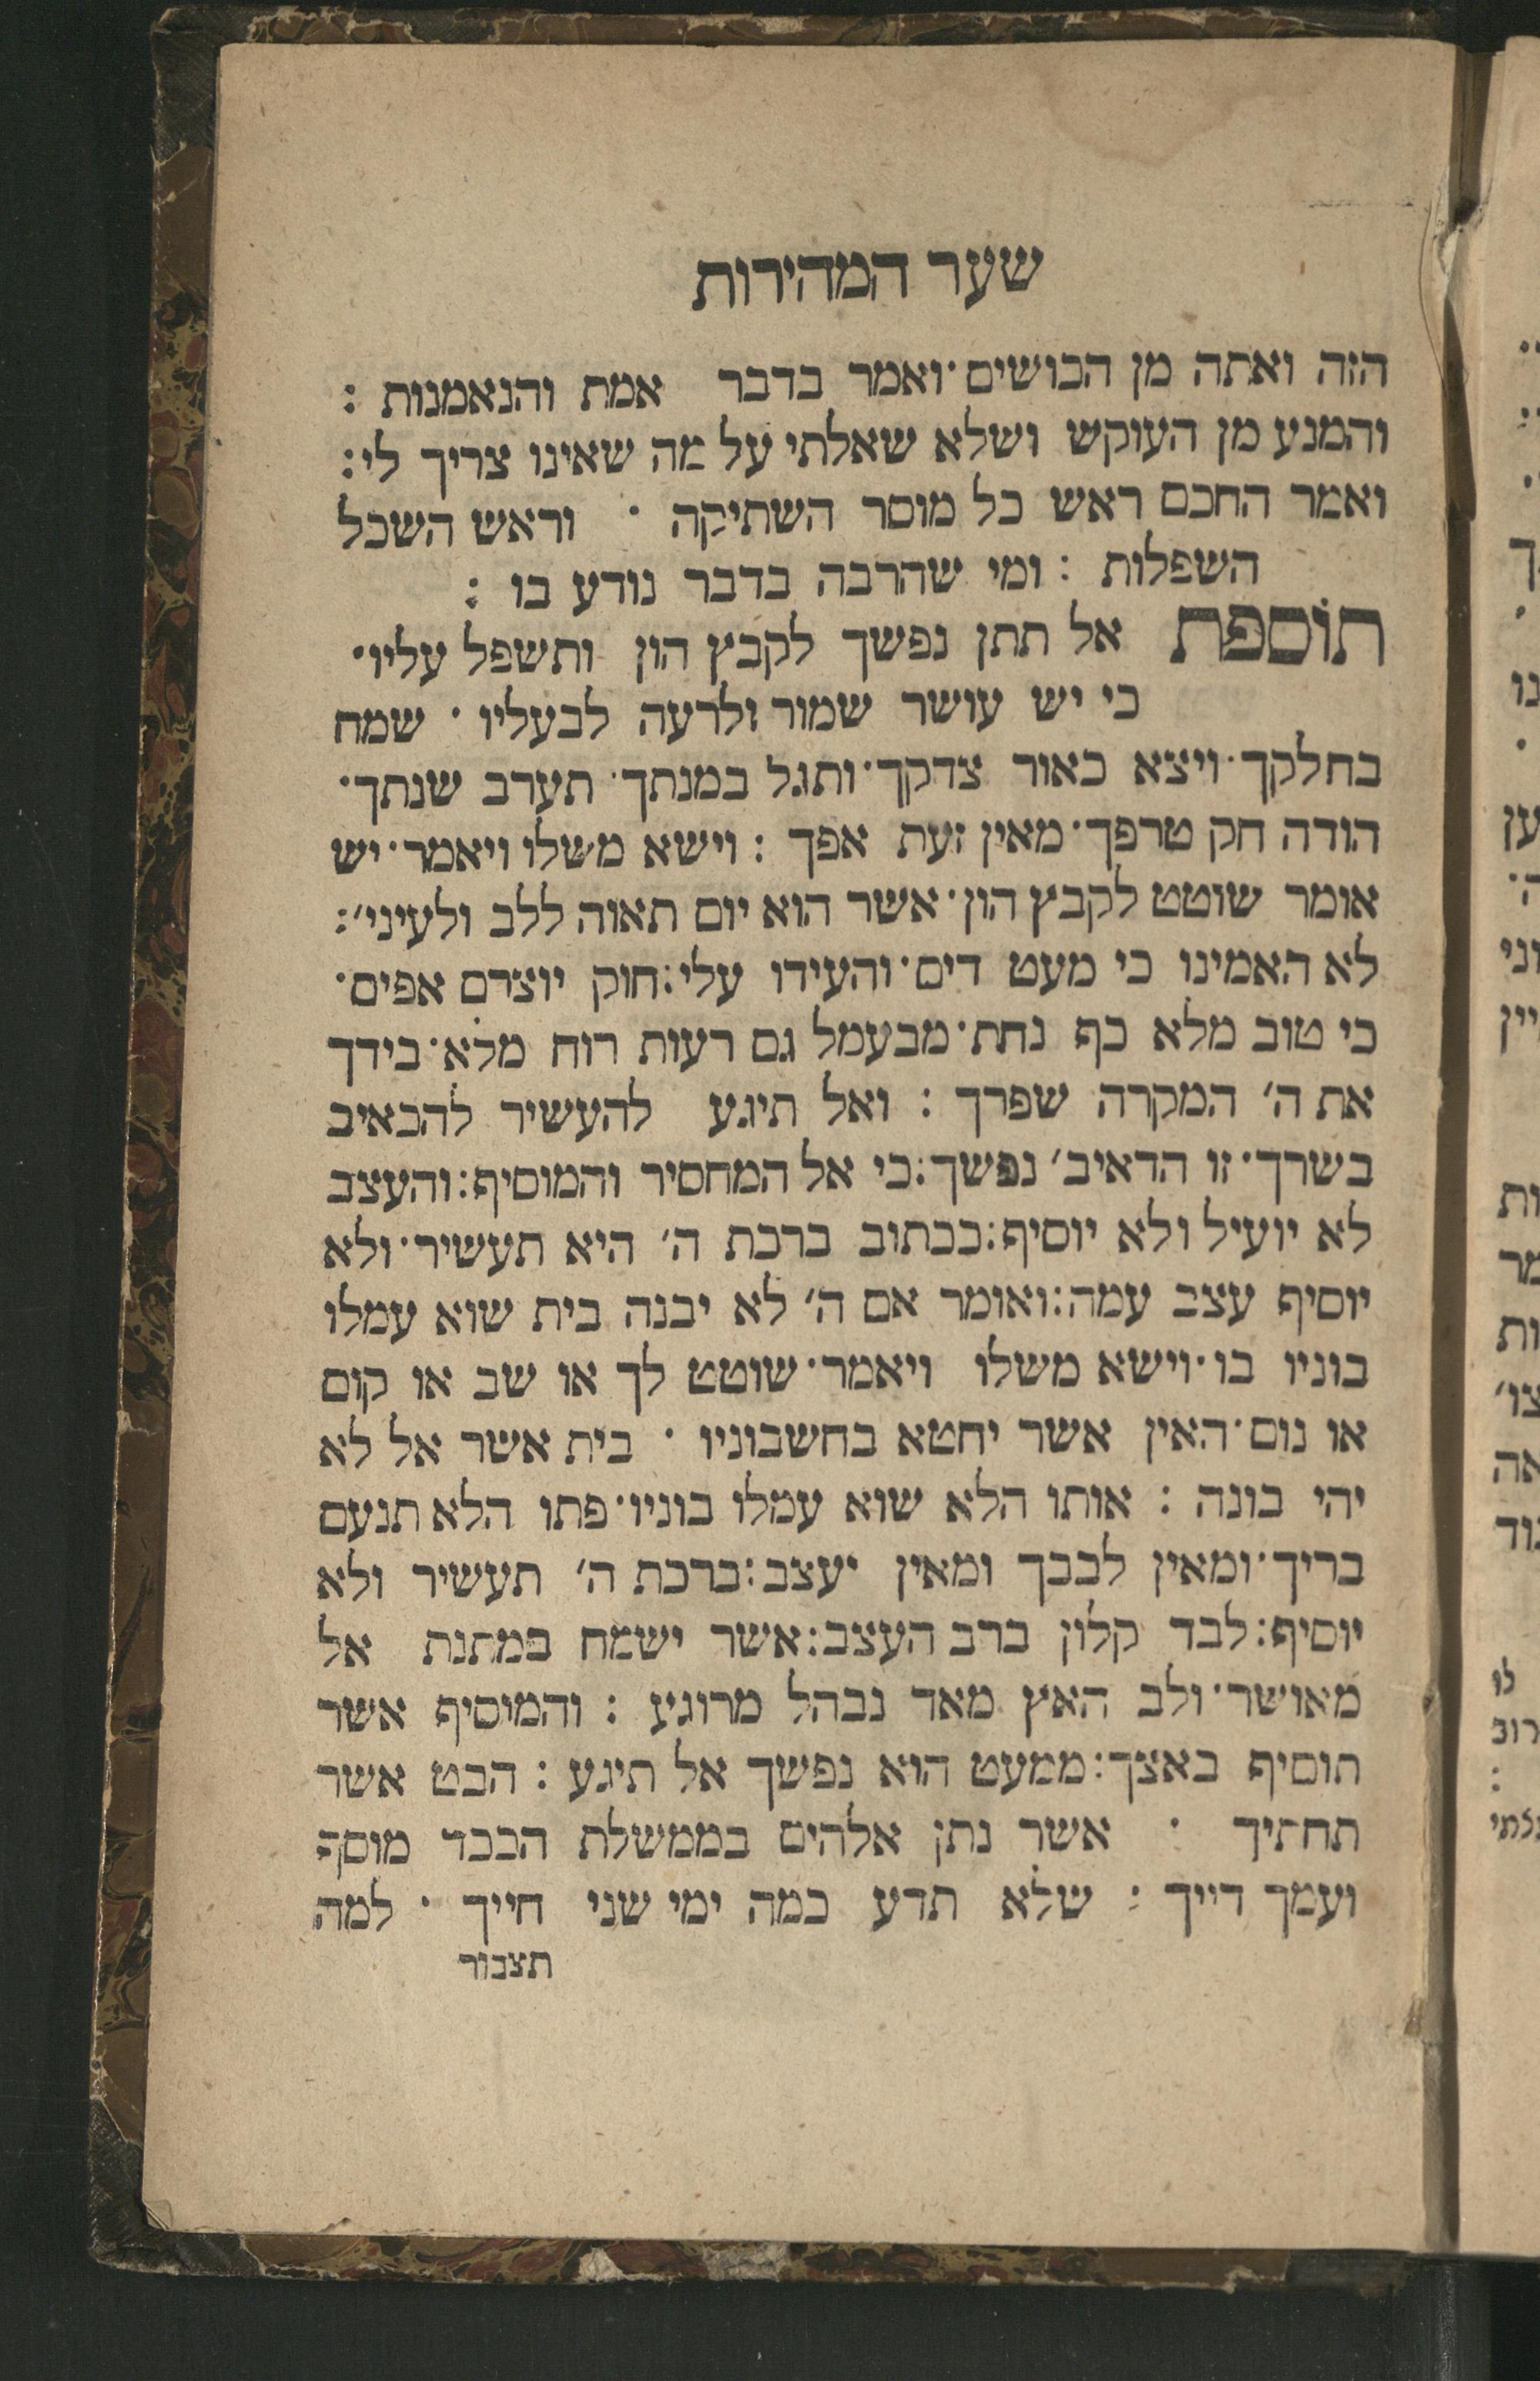 שער המהירות
הזה ואתה מן הבושים· ואמר בדבר אמת והנאמנות :
והמנע מן העוקש ושלא שאלתי על מה שאינו צריך לי :
ואמר החכם ראש כל מוסר השתיקה · וראש השכל
השפלות : ומי שהרבה בדבר נודע בו :
תוספת אל תתן נפשך לקבץ הון ותשפל עליו·
כי יש עושר שמור ולרעה לבעליו · שמח
בחלקך· ויצא כאור צדקך· ותגל במנתך· תערב שנתך·
הודה חק טרפך· מאין זעת אפך : וישא משלו ויאמר· יש
אומר שוטט לקבץ הון· אשר הוא יום תאוה ללב ולעיני׳ :
לא האמינו כי מעט דים· והעידו עלי : חוק יוצרם אפים·
כי טוב מלא כף נחת· מבעמל גם רעות רוח מלא· בידך
את ה׳ המקרה שפרך : ואל תיגע להעשיר להכאיב
בשרך· זו הדאיב׳ נפשך : כי אל המחסיר והמוסיף : והעצב
לא יועיל ולא יוסיף : ככתוב ברכת ה׳ היא תעשיר· ולא
יוסיף עצב עמה : ואומר אם ה׳ לא יבנה בית שוא עמלו
בוניו בו· וישא משלו ויאמר· שוטט לך או שב או קום
או נום· האין אשר יחטא בחשבוניו · בית אשר אל לא
יהי בונה : אותו הלא שוא עמלו בוניו· פתו הלא תנעם
בריך· ומאין לבבך ומאין יעצב : ברכת ה׳ תעשיר ולא
יוסיף : לבד קלון ברב העצב : אשר ישמח במתנת אל
מאושר· ולב האץ מאד נבהל מרוגיע : והמוסיף אשר
תוסיף באצך : ממעט הוא נפשך אל תיגע : הבט אשר
תחתיך · אשר נתן אלהים בממשלת הכבד מוסף
ועמך דייך : שלא תדע כמה ימי שני חייך · למה
תצבור